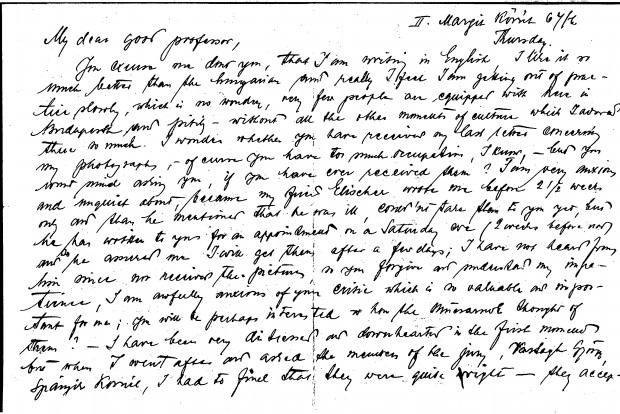 II. Margit Körút 64/b
Thursday.
My dear good professor,
You excuse me don't you, that I am writing in English I like it so
much better than the Hungarian and really I feel I am getting out of prac-
tice slowly, which is no wonder, very few people are equipped with here in
Budapest and pity - without all the other moments of culture which I
these so much. I wonder whether you have received my last letter concerning
my photographs, - of course you have too much occupation, I know, - but you
wont mind asking you, if you have ever received them? I am very anxious
and unquiet about, because my friend Elischer wrote me before 2 1/2 weeks
only and than he mentioned that he was ill, could'nt take them to you yet, but
he has written to you for an appointment on a Saturday eve (2 weeks before now
and he assured me I will get them after a few days; I have not heard from
him since nor received the pictures, so you forgive and understand my impa-
tience, I am awfully anxious of your critic which is so valuable and impor-
tant for me; you will be perhaps interested so how the thought of
them? - I have been very distressed and downhearted in the first moment
but when I went after and asked the members of the jury, Vastagh György,
Spányik Kornél, I had to find that they were quite right - they accep-